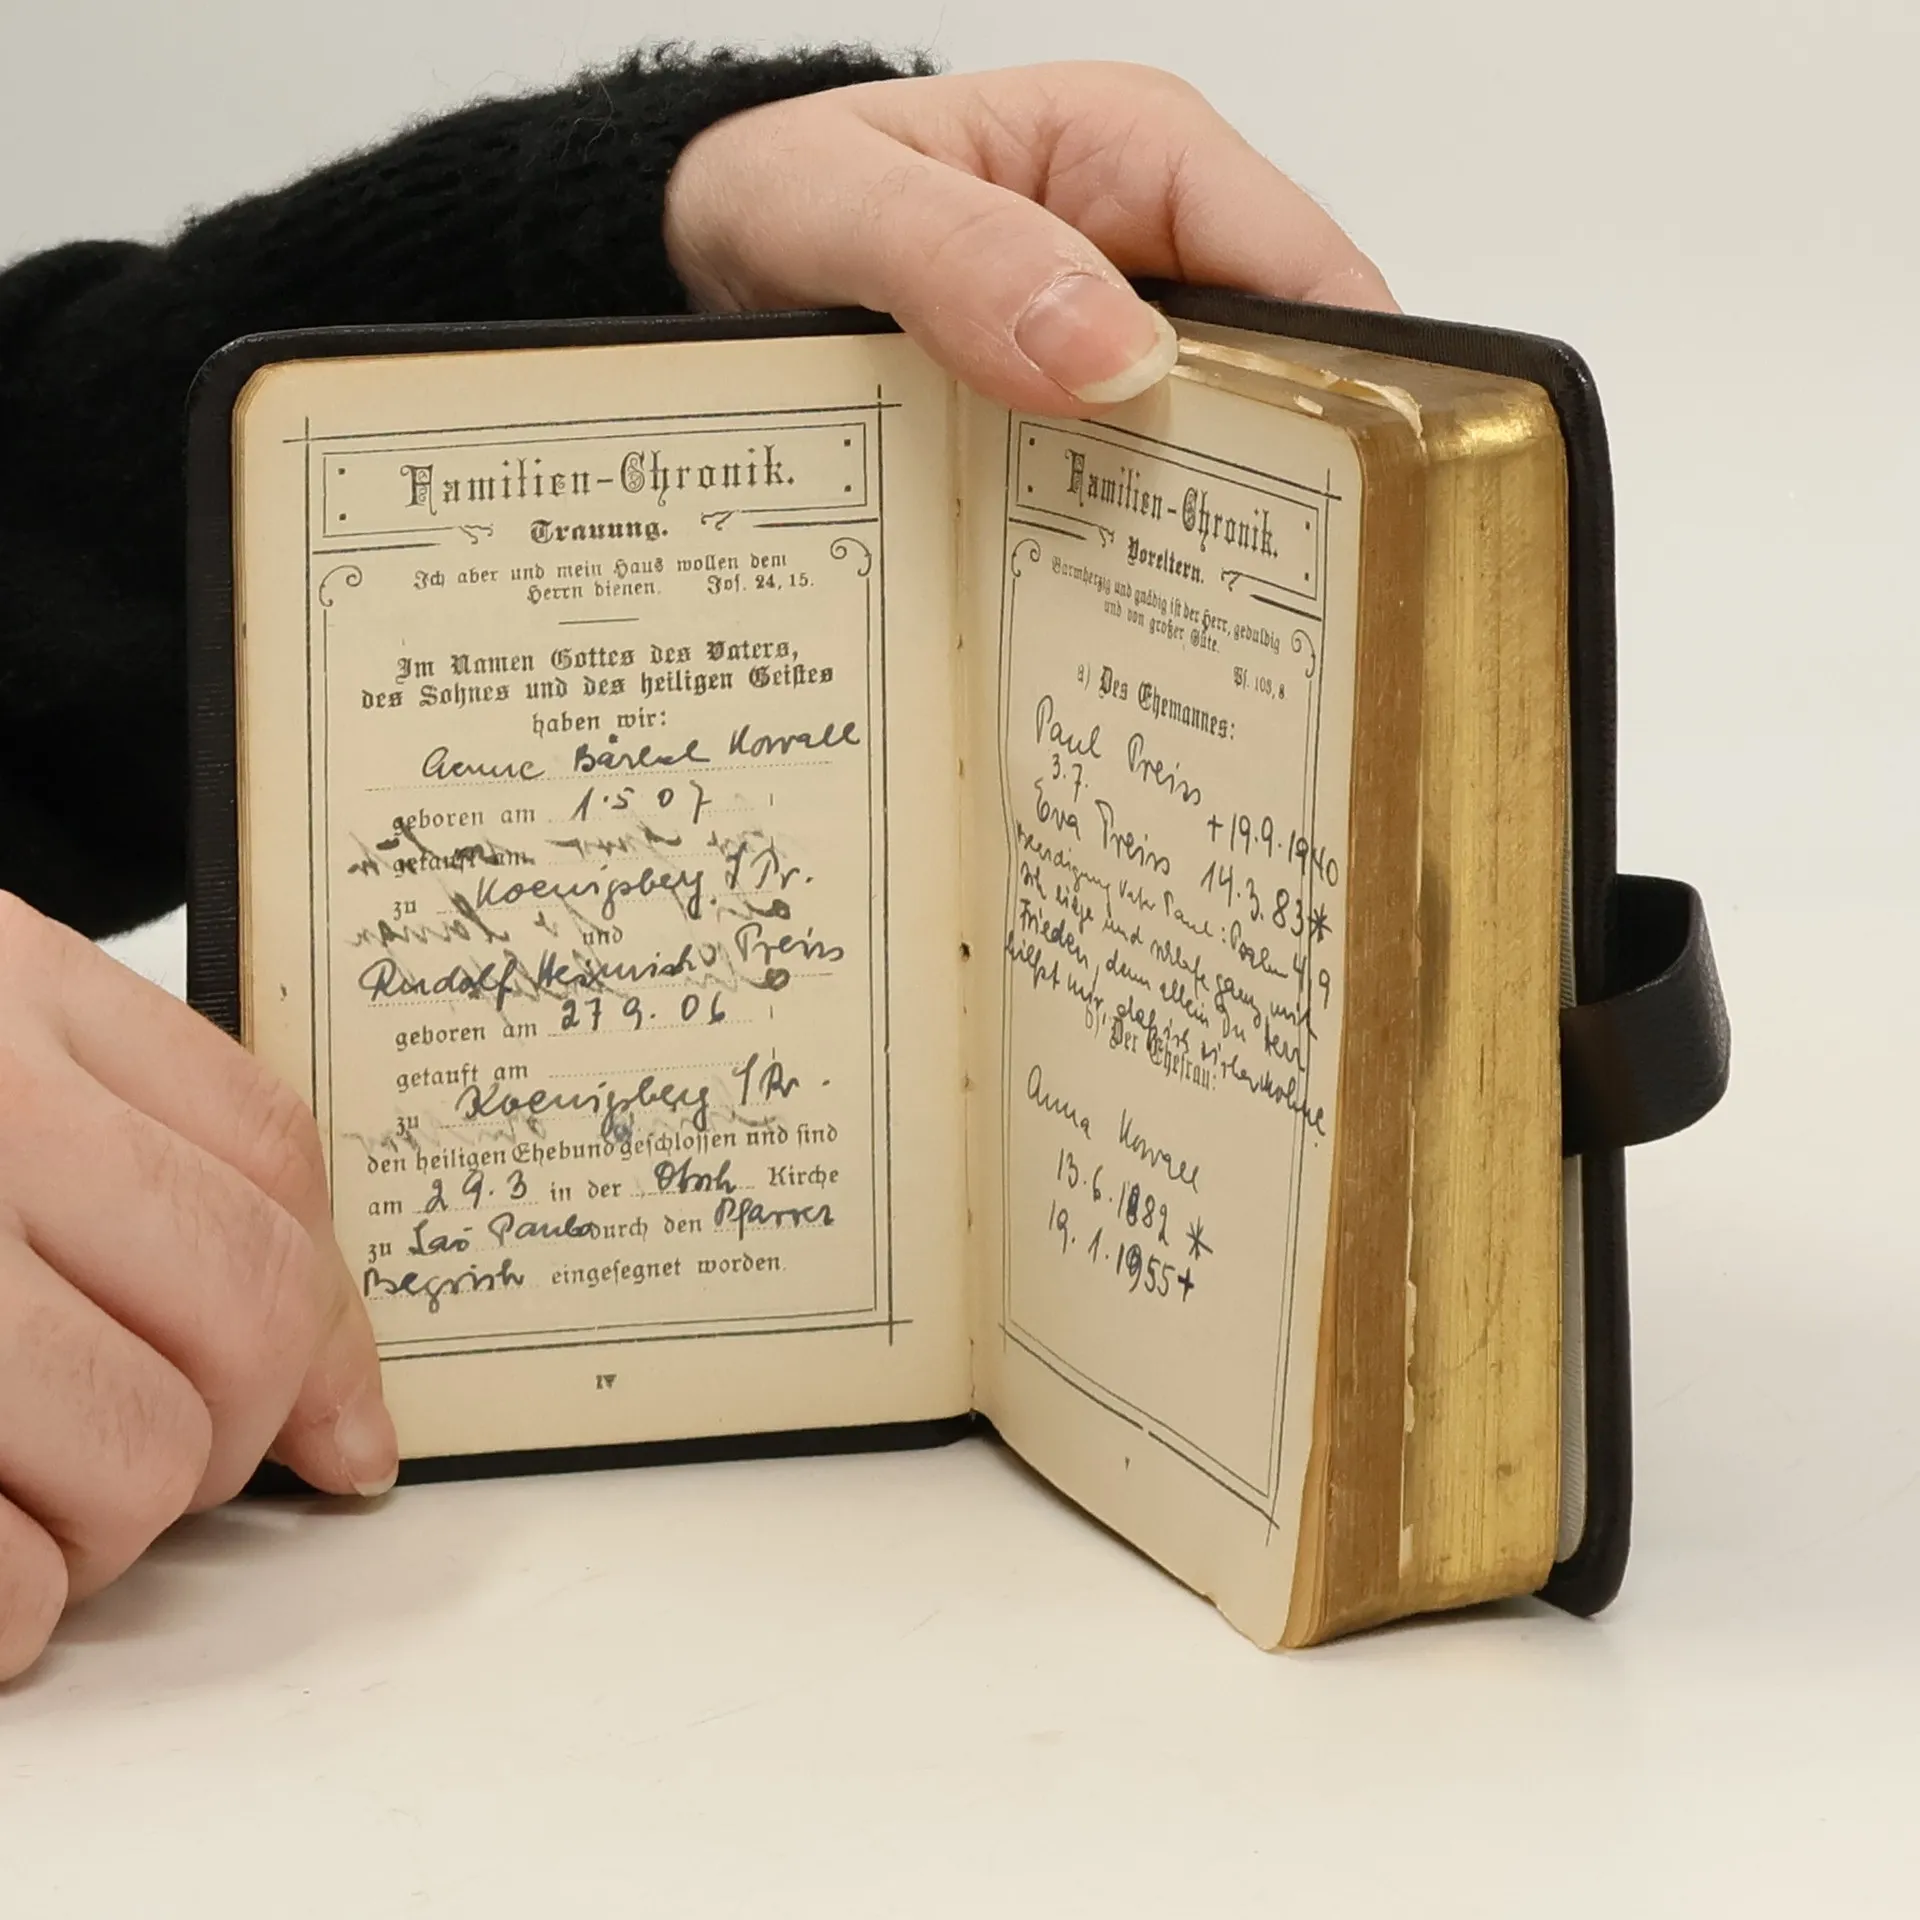 Familien-Chronik.
Trauung.
Ich aber und mein Haus wollen dem
Herrn dienen. Jos. 24, 15.
Im Namen Gottes des Vaters,
des Sohnes und des heiligen Geistes
haben wir:
Anne Bärbel Kowall
geboren am 1.5 07
getauft am
zu Koenigsberg /Pr.
und
Rudolf Heinrich Preiss
geboren am 27 9. 06
getauft am
zu Koenigsberg /Pr.
den heiligen Ehebund geschlossen und sind
am 29.3 in der Kirche
zu Sao Paulo durch den Pfarrer
eingesegnet worden.
IV
Familien-Chronik.
Voreltern.
Barmherzig und gnädig ist der Herr, geduldig
und von großer Güte.
Ps. 103, 8
a) Des Ehemannes:
Paul Preiss
3.7. + 19.9.1940
Eva Preiss 14.3.83 *
Beerdigung Vater Paul: Psalm 4,9
Ich liege und schlafe ganz mit
Frieden, denn allein Du Herr
hilfst mir, daß ich sicher wohne.
b) Der Ehefrau:
Anna Kowall
13.6.1882 *
19.1.1955 +
V